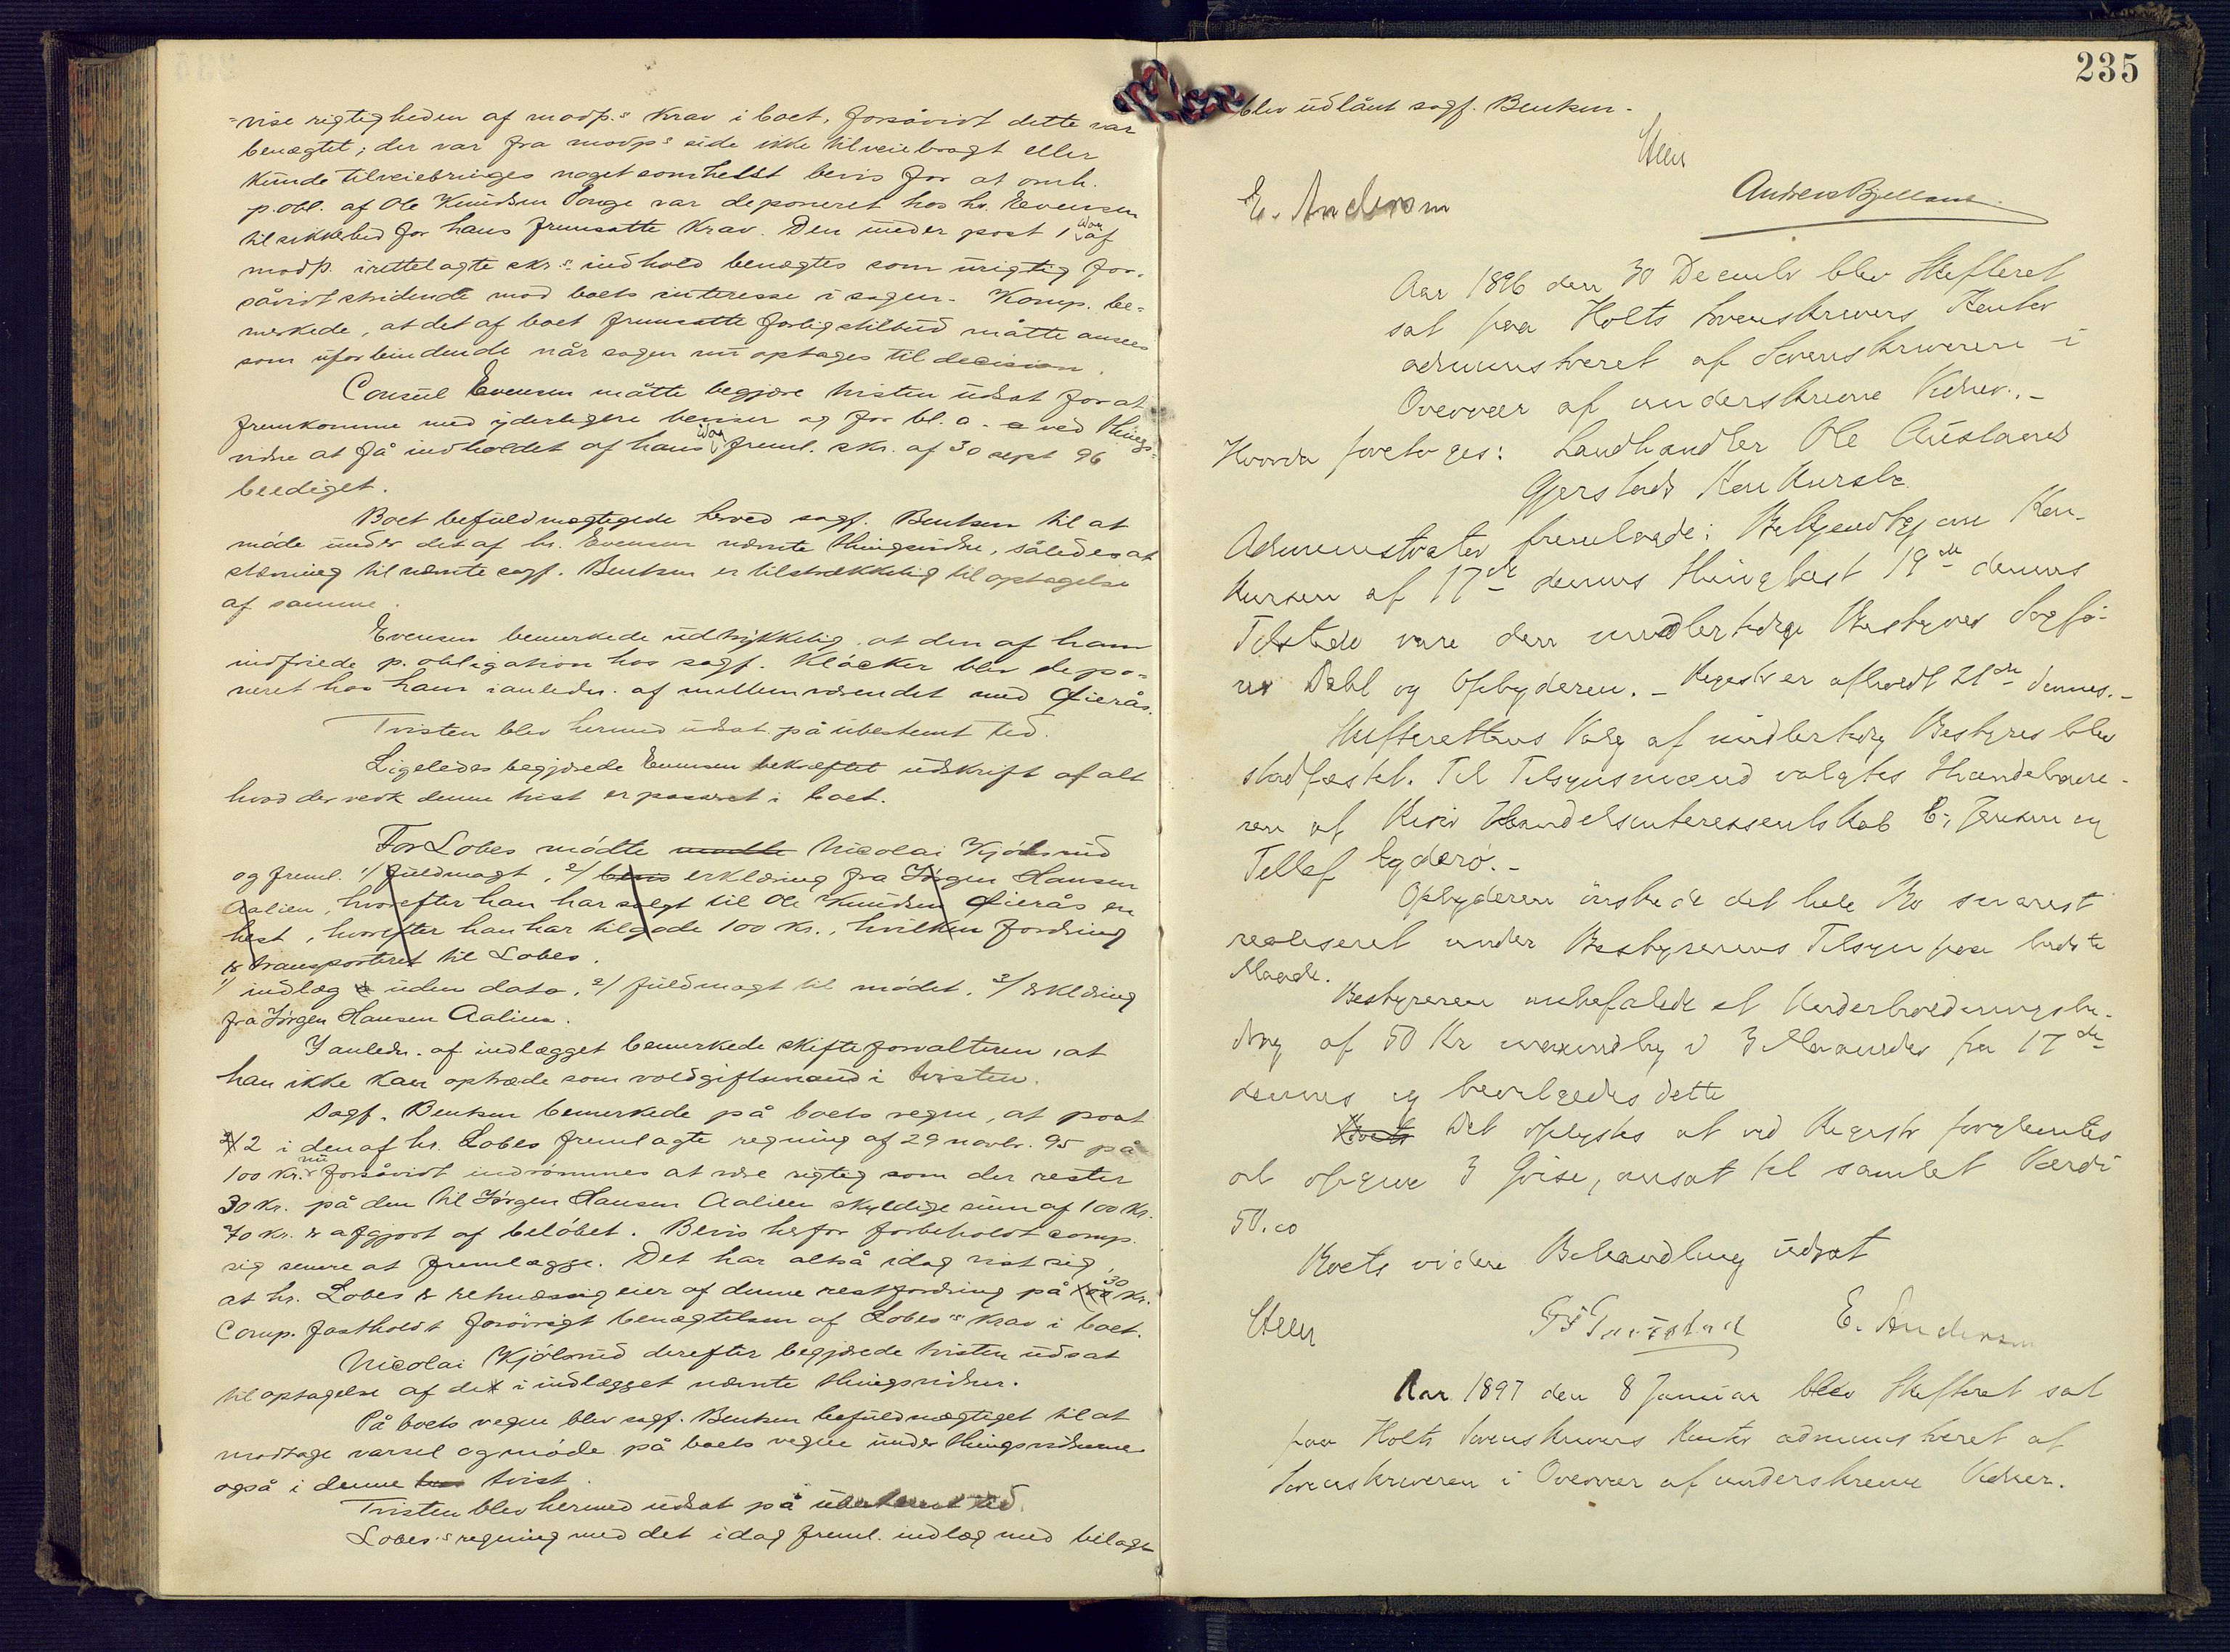 =vise rigtigheden af modp.s krav i boet, forsåvidt dette var
benægtet; der var fra modps side ikke tilveiebragt eller
kunde tilveiebringes noget somhelst bevis for at omh.
p.obl. af Ole Knudsen Songe var deponeret hos hr. Evensen
til sikkerhed for hans fremsatte krav. Den under post 1 idag af
modp. irettelagte skr.s indhold benægtes som urigtig for-
såvidt stridende mod boets interesse i sagen. Komp. be-
merkede, at det af boet fremsatte forligstilbud måtte ansees
som uforbindende når sagen nu optages til decision.
Consul Evensen måtte begjære tvisten udsat for at
fremkomme med yderligere beviser og for bl. a. ved things-
vidne at få indholdet af hans idag freml. skr. af 30 sept 96
beediget.
Boet befuldmægtigede herved sagf. Bentsen til at
møde under det af hr. Evensen nævnte thingsvidne, således at
stævning til nævnte sagf. Bentsen er tilstrækkelig til optagelse
af samme.
Evensen bemerkede udtrykkelig, at den af ham
indfriede p. obligation hos sagf. Kløcker blev depo-
neret hos ham i anledn. af mellemværendet med Fierås.
Tvisten blev hermed udsat på ubestemt tid.
Ligeledes begjærede Evensen bekræftet udskrift af alt
hvad der vedk denne tvist er passeret i boet.
For Lobes mødte Nicolai Kjölsrud
og freml. 1/ fuldmagt, 2/ erklæring fra Jørgen Hansen
Aalien, hvorefter han har solgt til Ole Knudsen Fierås en
hest, hvorefter han har tilgode 100 kr., hvilken fordring
er transporteret til Lobes.
1/ indlæg uden dato, 2/ fuldmagt til mødet, 3/ erklæring
fra Jørgen Hansen Aalien.
I anledn. af indlægget bemerkede skifteforvalteren, at
han ikke kan optræde som voldgiftsmand i tvisten.
Sagf. Bentsen bemerkede på boets vegne, at post
2 i den af hr. Lobes fremlagte regning af 29 novbr. 95 på
100 kr. nu forsåvidt indrømmes at være rigtig som der rester
30 kr. på den til Jørgen Hansen Aalien skyldige sum af 100 kr.
70 kr. er afgjort af beløbet. Bevis herfor forbeholdt comp.
sig senere at fremlægge. Det har altså idag vist sig,
at hr. Lobes er retmæssig eier af denne restfordring på 30 kr.
Comp. fastholdt forøvrigt benægtelsen af Lobes's krav i boet.
Nicolai Kjölsrud derefter begjærede tvisten udsat
til optagelse af det i indlægget nævnte thingsvidner.
På boets vegne blev sagf. Bentsen befuldmægtiget til at
modtage varsel og møde på boets vegne under thingsvidnerne
også i denne tvist.
Tvisten blev hermed udsat på ubestemt tid.
Lobes's regning med det idag freml. indlæg med bilage
235
blev udlånt sagf. Bentsen.
Steen
E. Andersen Andreas Bjelland
Aar 1896 den 30 Decembr blev Skifteret
sat paa Holts Sorenskrivers Kontor
administreret af Sorenskriveren i
Overvær af underskrevne Vidner.-
Hvorda foretoges: Landhandler Ole Auslands
Gjerstads Konkursbo.
Administrator fremlagde: Bekjendtgj om Kon-
kursen af 17de dennes thinglæst 19de dennes
Tilstede vare den midlertidige Bestyrer Sagfø-
rer Dahl og Opbyderen. - Registr er afholdt 21de dennes.-
Skifterettens Valg af midlertidig Bestyrer blev
stadfæstet. Til Tilsynsmænd valgtes Ihændehave-
ren af Risør Handelsinteressentskab E. Jensen og
Tellef Lyderø.-
Opbyderen ønskede det hele Bo snarest
realiseret under Bestyrerens Tilsyn paa bedste
Maade.
Bestyreren anbefalede et Underholdningsbi-
drag af 50 Kr maanedlig i 3 Maaneder fra 17de
dennes og bevilgedes dette
Det oplystes at ved Registr forglemtes
at opgive 3 Grise, ansat til samlet Værdi
50.00
Boets videre Behandling udsat
Steen E. Andersen
Aar 1897 den 8 Januar blev Skifteret sat
paa Holts Sorenskrivers Kontor administreret af
Sorenskriveren i Overvær af underskrevne Vidner.